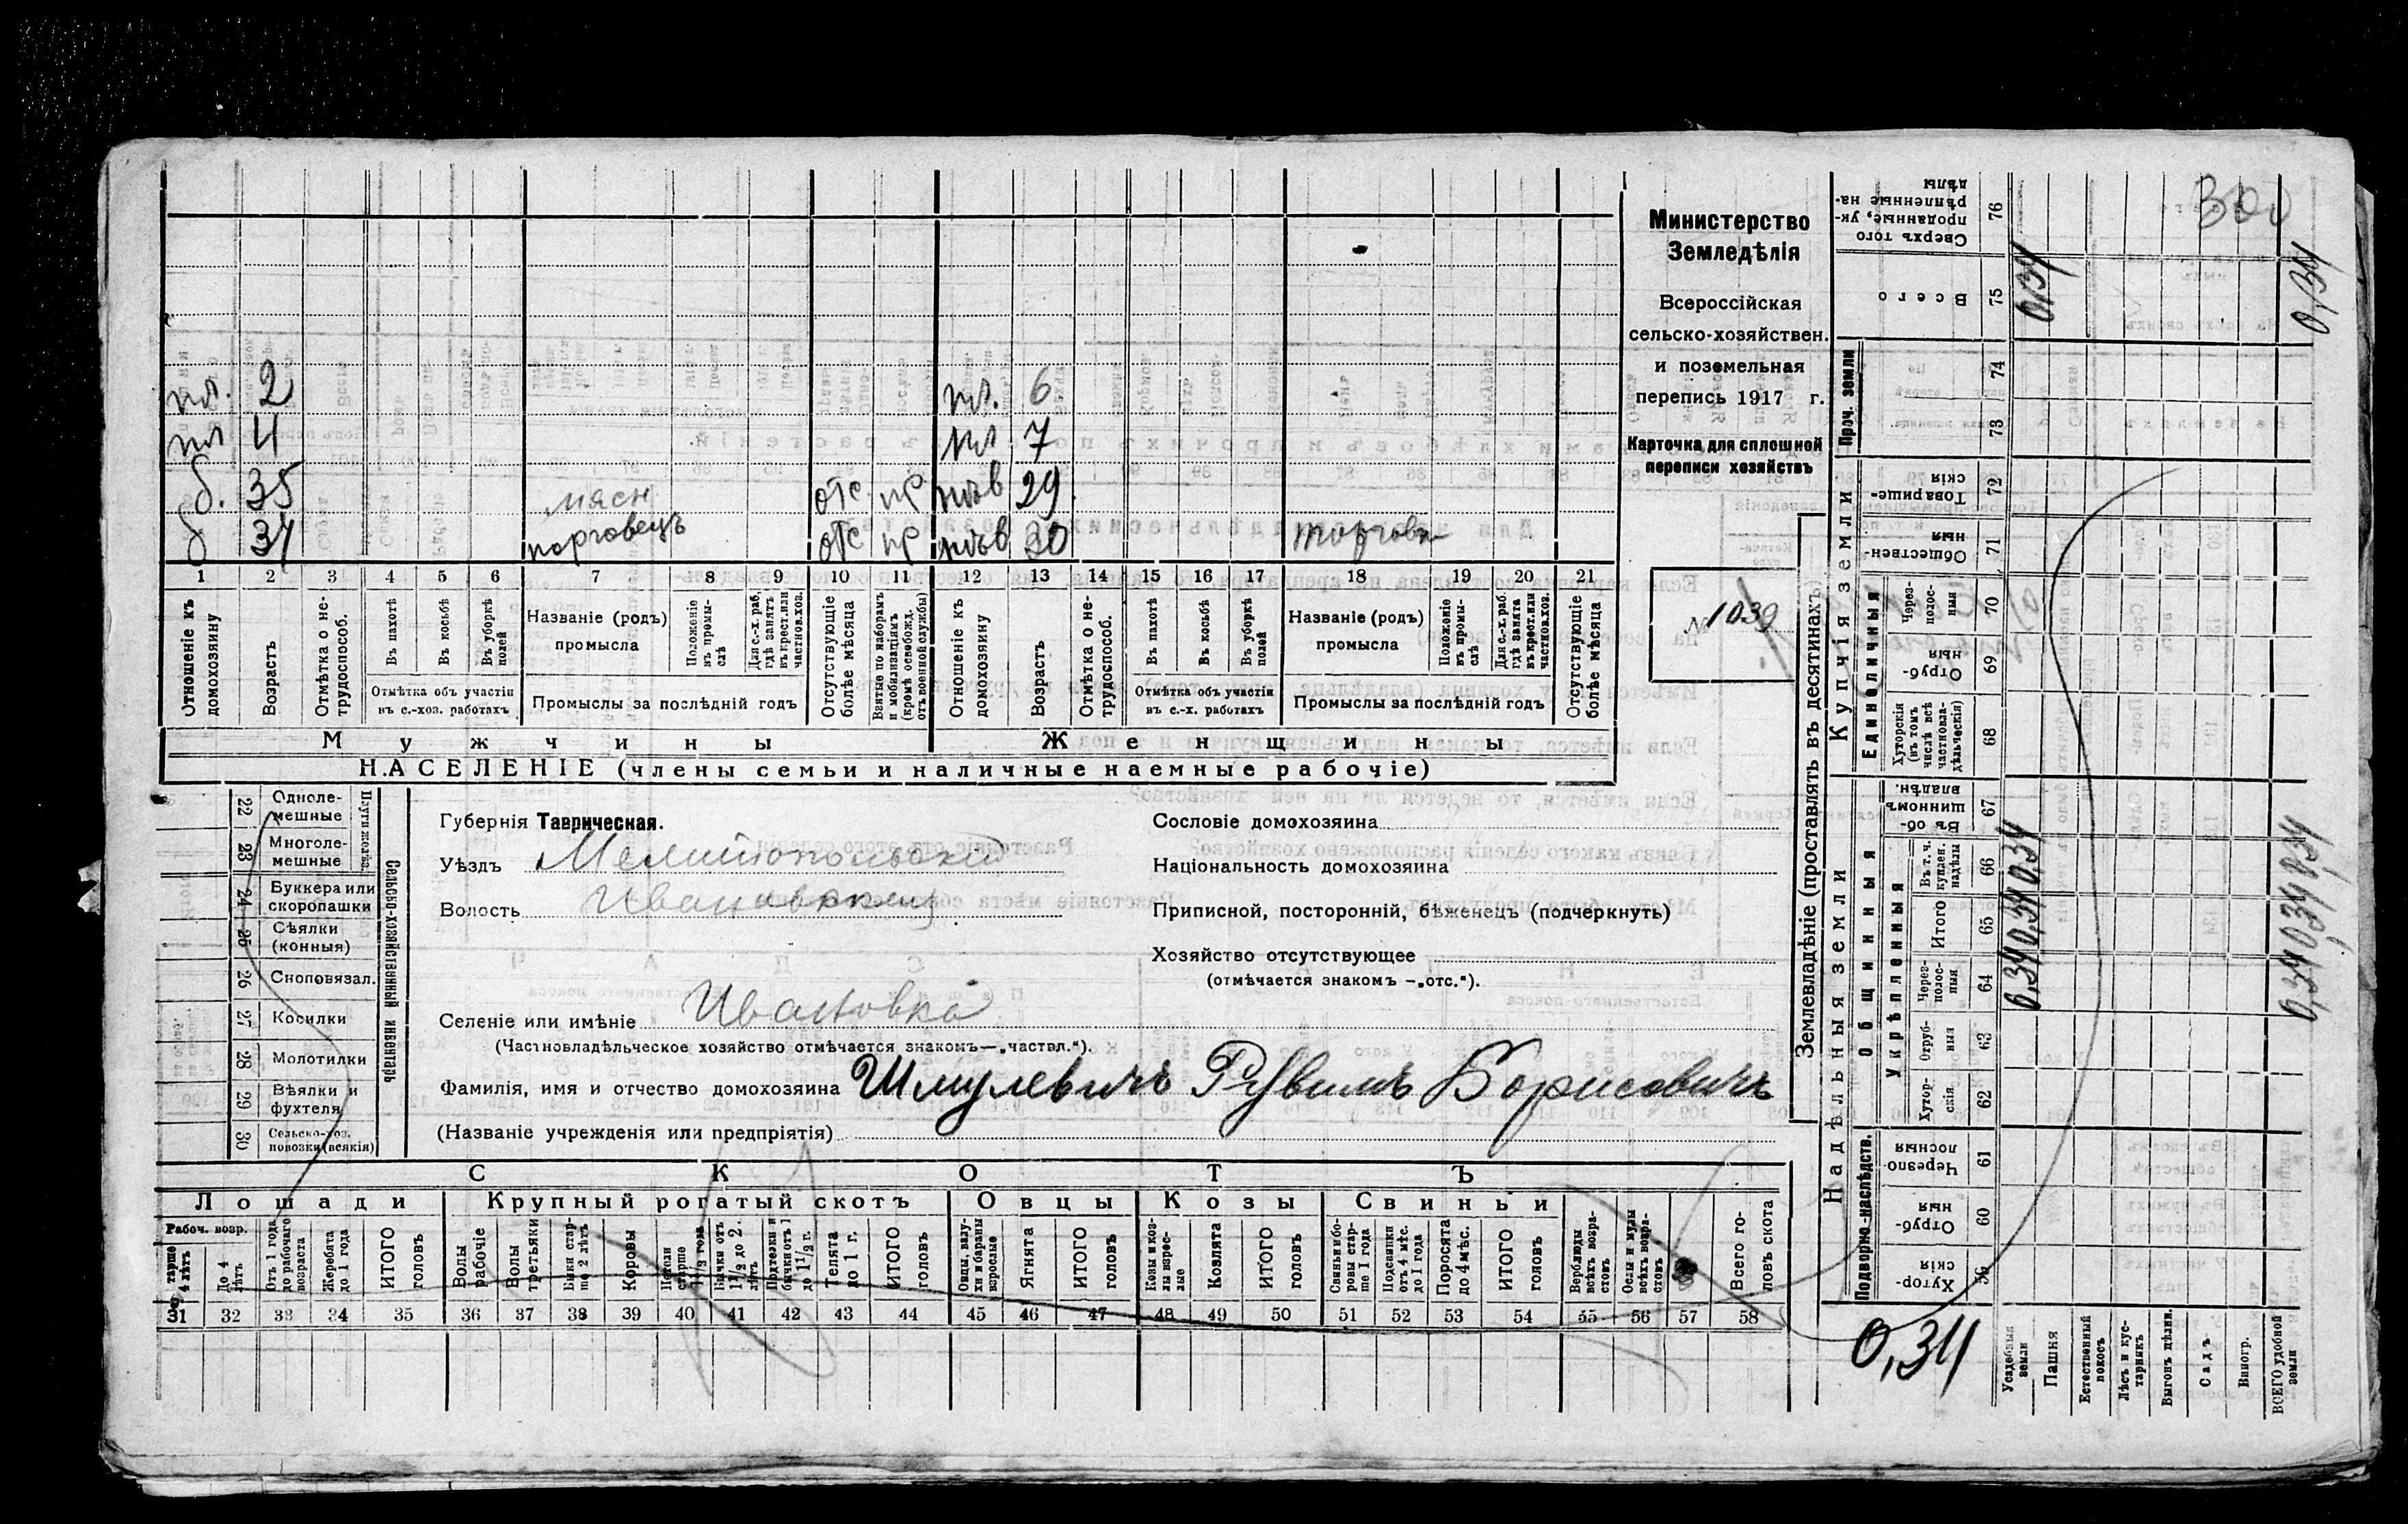 Министерство
Земледѣлія
Всероссійская
сельско-хозяйствен.
и поземельная
перепись 1917 г.
Карточка для сплошной
переписи хозяйствъ
№ 1039
пл. 2 пл. 6
пл 4 пл 7
б. 35 мясн отс пр нев 29
б 34 торговецъ отс пр нев 30 торгов
1 2 3 4 5 6 7 8 9 10 11 12 13 14 15 16 17 18 19 20 21
Отношеніе къ домохозяину
Возрастъ
Отмѣтка о не-трудоспособ.
Въ пахотѣ
Въ косьбѣ
Въ уборкѣ полей
Отмѣтка объ участіи въ с.-хоз. работахъ
Названіе (родъ) промысла
Положеніе въ промы-слѣ
Для с.-х. раб. гдѣ занятъ въ крест. или частнов. хоз.
Промыслы за послѣдній годъ
Отсутствующіе болѣе мѣсяца
Взятые по наборамъ и мобилизаціямъ (кромѣ освобожд. отъ военной службы)
Отношеніе къ домохозяину
Возрастъ
Отмѣтка о не-трудоспособ.
Въ пахотѣ
Въ косьбѣ
Въ уборкѣ полей
Отмѣтка объ участіи въ с.-х. работахъ
Названіе (родъ) промысла
Положеніе въ промы-слѣ
Для с.-х. раб. гдѣ занята въ крест. или частнов. хоз.
Промыслы за послѣдній годъ
Отсутствующіе болѣе мѣсяца
Мужчины Женщины
НАСЕЛЕНІЕ (члены семьи и наличные наемные рабочіе)
22 Однолемешные
23 Многолемешные
Плуги желѣз.
24 Буккера или скоропашки
25 Сѣялки (конныя)
26 Сноповязал.
27 Косилки
28 Молотилки
29 Вѣялки и фухтеля
30 Сельско-хоз. повозки (всякія)
Сельско-хозяйственный инвентарь
Губернія Таврическая.
Уѣздъ Мелитопольский
Волость Ивановская
Селеніе или имѣніе Ивановка
(Частновладѣльческое хозяйство отмѣчается знакомъ—„частвл.“).
Фамилія, имя и отчество домохозяина Шмулевичъ Рувимъ Борисовичъ
(Названіе учрежденія или предпріятія)
Сословіе домохозяина
Національность домохозяина
Приписной, посторонній, бѣженецъ (подчеркнуть)
Хозяйство отсутствующее
(отмѣчается знакомъ —„отс.“).
СКОТЪ
Лошади Крупный рогатый скотъ Овцы Козы Свиньи
Рабоч. возр.
Старше 4 лѣтъ
До 4 лѣтъ
Отъ 1 года до рабочаго возраста
Жеребята до 1 года
ИТОГО головъ
Волы рабочіе
Волы третьяки
Быки стар-ше 2 лѣтъ
Коровы
Нетели старше 1 1/2 года
Бычки отъ 1 1/2 до 2. лѣтъ
Подтелки и бычки отъ 1 до 1 1/2 г.
Телята до 1 г.
ИТОГО головъ
Овцы, валу-хи и бараны взрослые
Ягнята
ИТОГО головъ
Козы и коз-лы взрос-лые
Козлята
ИТОГО головъ
Свиньи и бо-ровы стар-ше 1 года
Подсвинки отъ 4 мѣс. до 1 года
Поросята до 4 мѣс.
ИТОГО головъ
Верблюды всѣхъ возра-стовъ
Ослы и мулы всѣхъ возра-стовъ
Всего го-ловъ скота
31 32 33 34 35 36 37 38 39 40 41 42 43 44 45 46 47 48 49 50 51 52 53 54 55 56 57 58
Землевладѣніе (проставлять въ десятинахъ)
Надѣльныя земли
Подворно-наслѣдств.
Хутор-скія 59
Отруб-ныя 60
Черезпо лосныя 61
Общинныя
Укрѣпленныя
Хутор-скія 62
Отруб-ныя 63
Через-полос-ныя 64 0,34
Итого 65 0,34
Въ т. ч. куплен. надѣлы 66 0,34
Въ об-щинномъ владѣн. 67
Купчія земли
Единоличныя
Хуторскія (въ томъ числѣ всѣ частновла-дѣльческія) 68
Отруб-ныя 69
Через-полос-ныя 70
Обществен-ныя 71
Товарище-скія 72
Проч. земли
73
74
Всего 75 0,34
Сверхъ того проданные, ук-рѣпленные на-дѣлы 76
300
0,34
0,34 0,34 0,34
0,34
Усадебныя земли
Пашня
Естественный покосъ
Лѣсъ и кус-тарникъ
Выгонъ цѣлин.
Садъ
Виногр.
ВСЕГО удобной земли